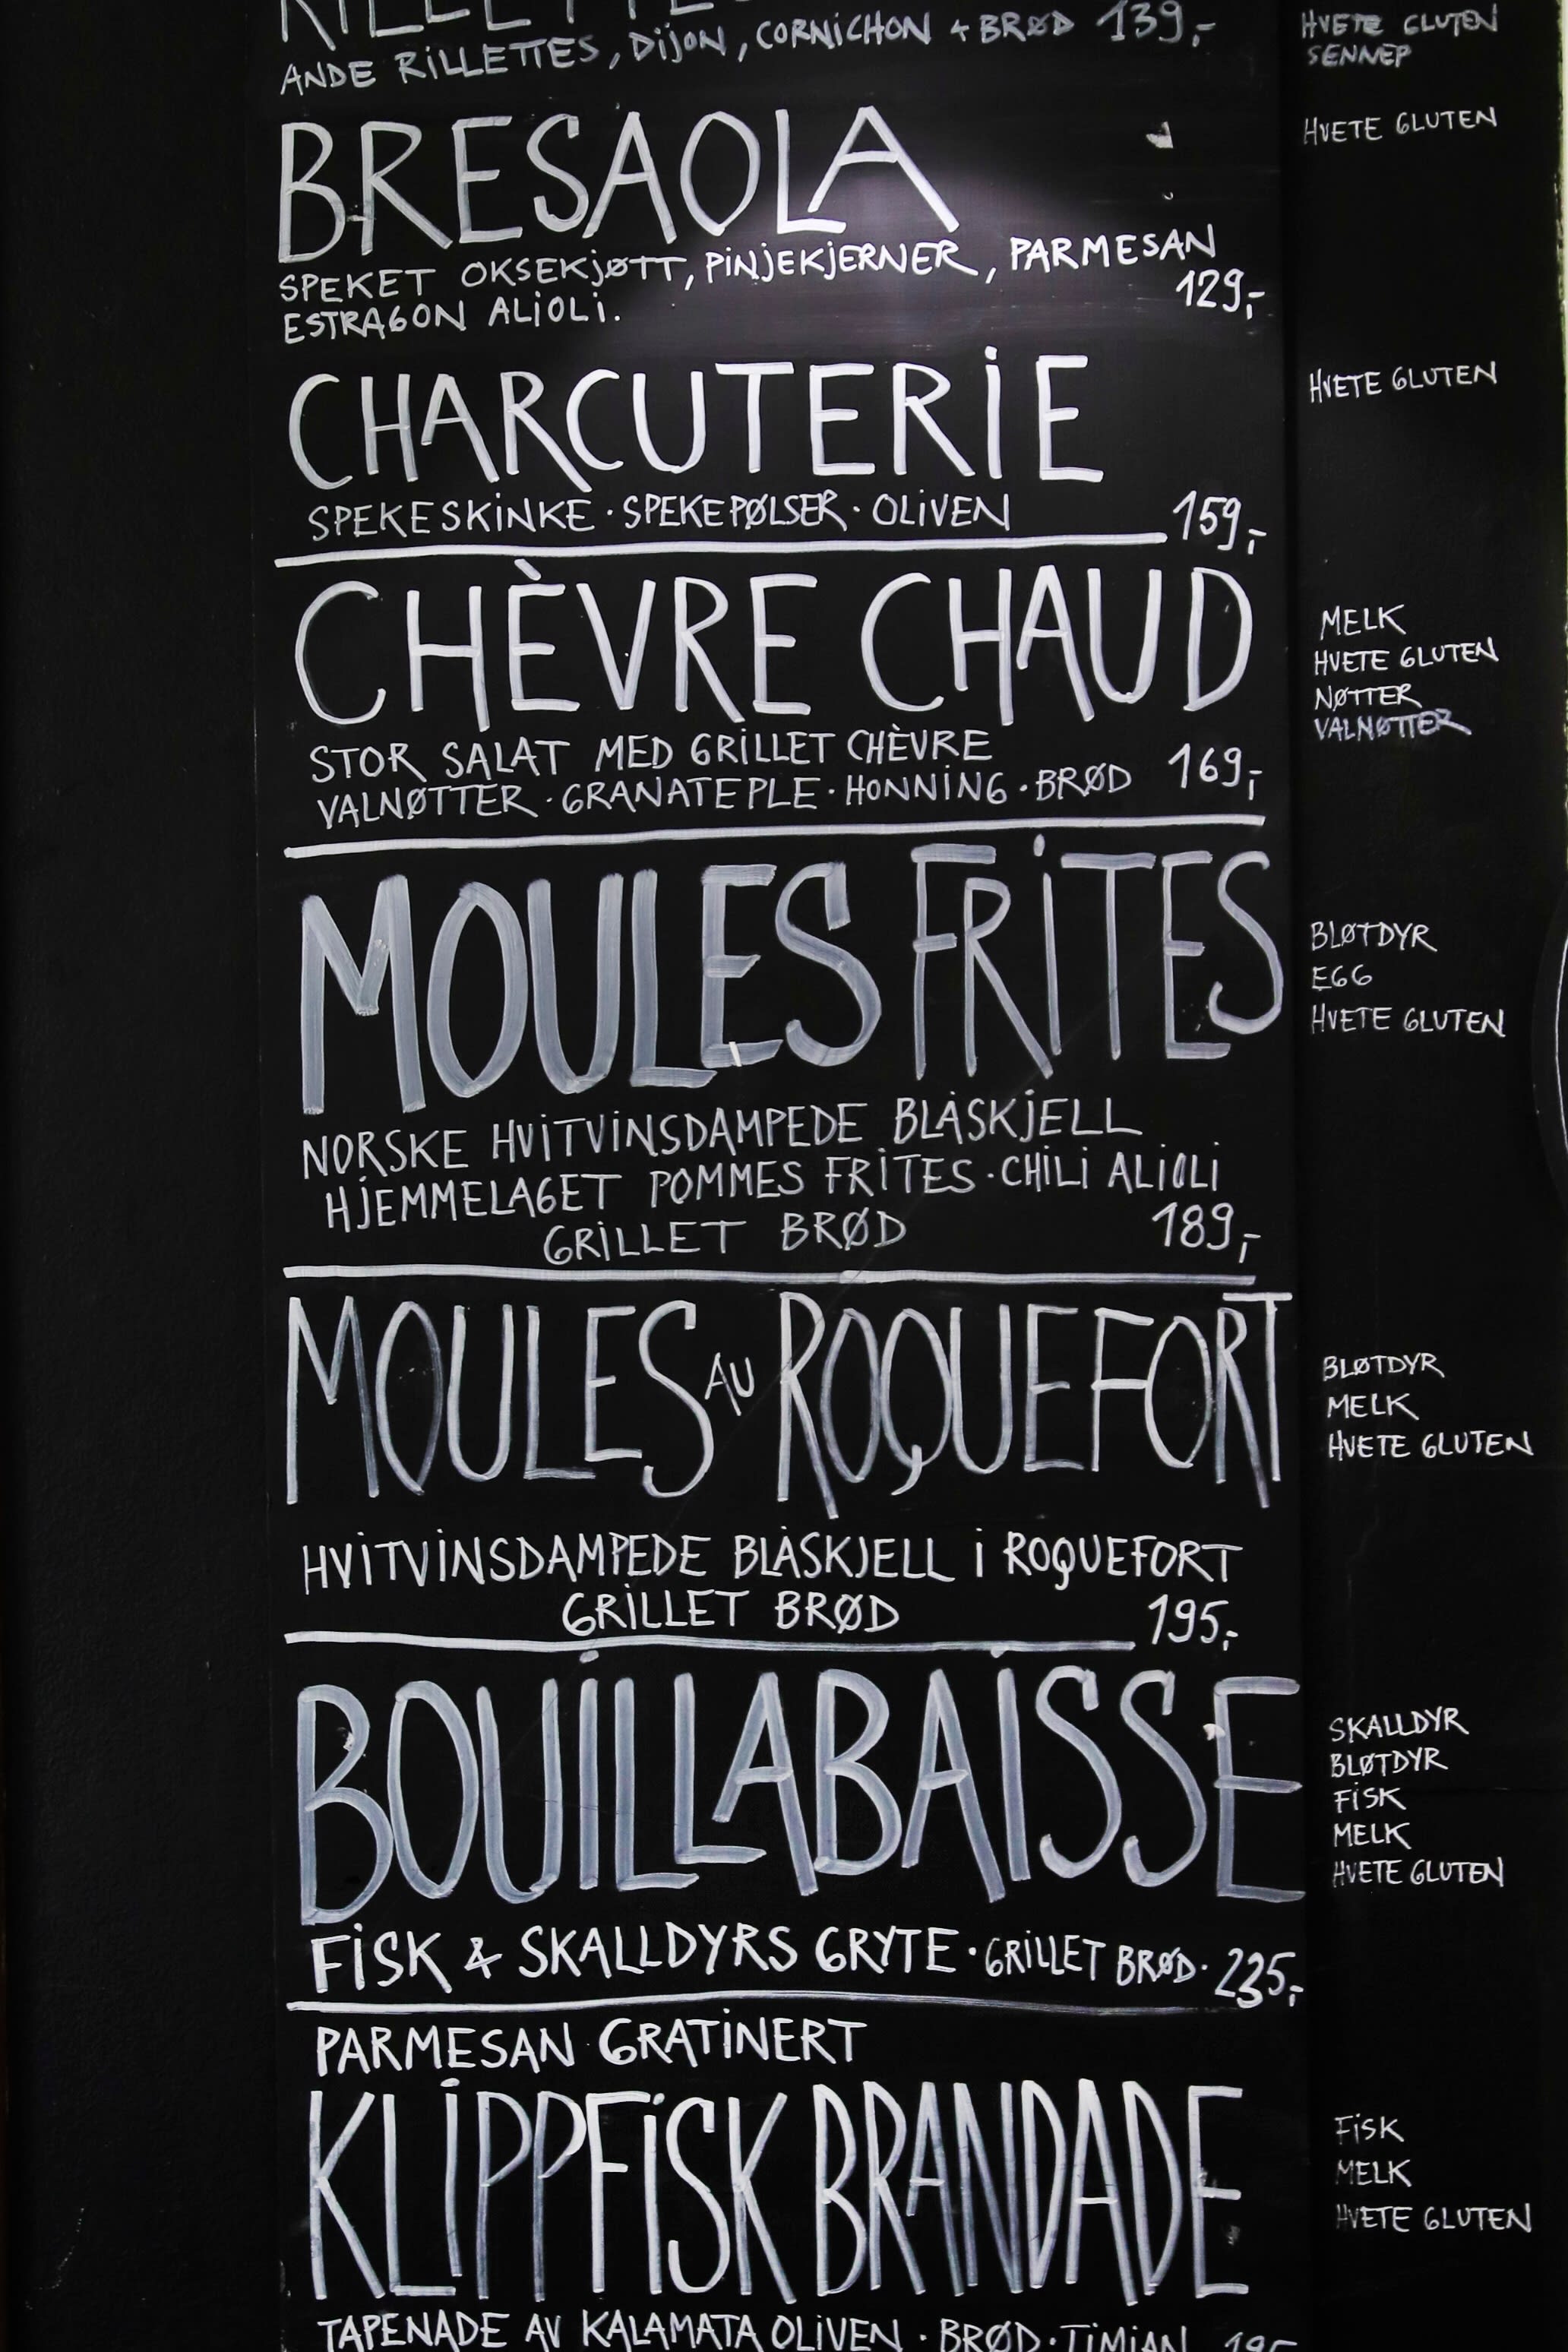 RILLETTES
ANDE RILLETTES, DIJON, CORNICHON + BRØD 139,-
HVETE GLUTEN
SENNEP
BRESAOLA
HVETE GLUTEN
SPEKET OKSEKJØTT, PINJEKJERNER, PARMESAN
ESTRAGON ALIOLI. 129,-
CHARCUTERIE
HVETE GLUTEN
SPEKESKINKE · SPEKEPØLSER · OLIVEN 159,-
CHÈVRE CHAUD
MELK
HVETE GLUTEN
NØTTER
VALNØTTER
STOR SALAT MED GRILLET CHÈVRE
VALNØTTER · GRANATEPLE · HONNING · BRØD 169,-
MOULES FRITES
BLØTDYR
EGG
HVETE GLUTEN
NORSKE HVITVINSDAMPEDE BLÅSKJELL
HJEMMELAGET POMMES FRITES · CHILI ALIOLI
GRILLET BRØD 189,-
MOULES AU ROQUEFORT
BLØTDYR
MELK
HVETE GLUTEN
HVITVINSDAMPEDE BLÅSKJELL I ROQUEFORT
GRILLET BRØD 195,-
BOUILLABAISSE
SKALLDYR
BLØTDYR
FISK
MELK
HVETE GLUTEN
FISK & SKALLDYRS GRYTE · GRILLET BRØD · 235,-
PARMESAN GRATINERT
KLIPPFISK BRANDADE
FISK
MELK
HVETE GLUTEN
TAPENADE AV KALAMATA OLIVEN · BRØD · TIMIAN 195